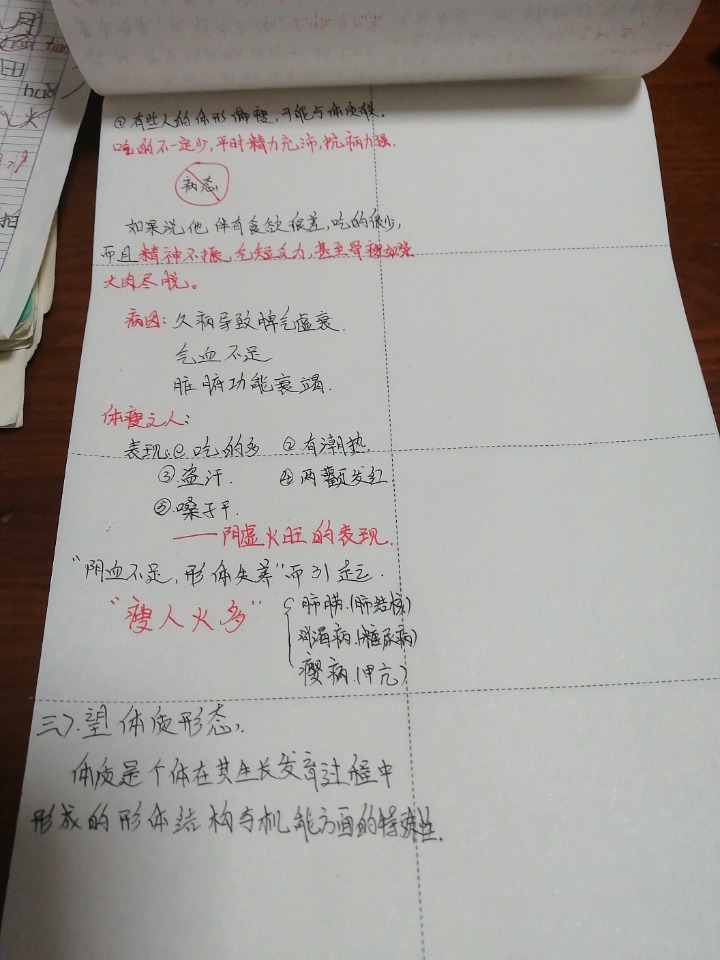 ①有些人的体形偏瘦,可能与体质
吃的不一定少,平时精力充沛,抗病力强.
病态
如果说他伴有食欲很差,吃的很少,
而且精神不振,气短乏力,甚至骨瘦如柴
大肉尽脱。
病因:久病导致脾气虚衰.
气血不足
脏腑功能衰竭.
体瘦之人:
表现:①吃的多 ②有潮热,
③盗汗. ④两颧发红
⑤嗓子干.
——阴虚火旺的表现.
"阴血不足,形体失养"而引起.
"瘦人火多"
肺痨.(肺结核)
消渴病.(糖尿病)
瘿病.(甲亢)
三>.望体质形态,.
体质是个体在其生长发育过程中
形成的形体结构与机能方面的特殊性.
月
田
火
拍